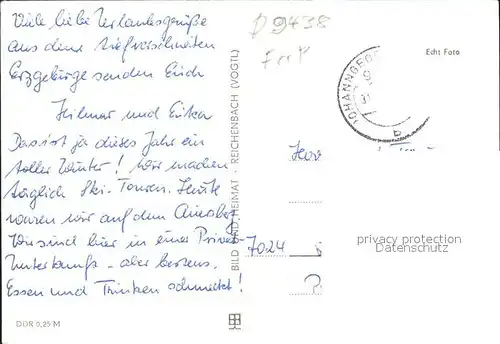 Viele liebe Urlaubsgrüße
aus dem tiefverschneiten
Erzgebirge senden Euch
Hilmar und Erika
Das ist ja dieses Jahr ein
toller Winter! Wir machen
täglich Ski-Touren. Heute
waren wir auf dem Auersberg
Wir sind hier in einer Privat-
Unterkunft - aber bestens.
Essen und Trinken schmeckt!
DDR 0,25 M
BILD UND HEIMAT · REICHENBACH (VOGTL)
D 9438
Echt Foto
JOHANNGEO
7024
privacy protection
Datenschutz